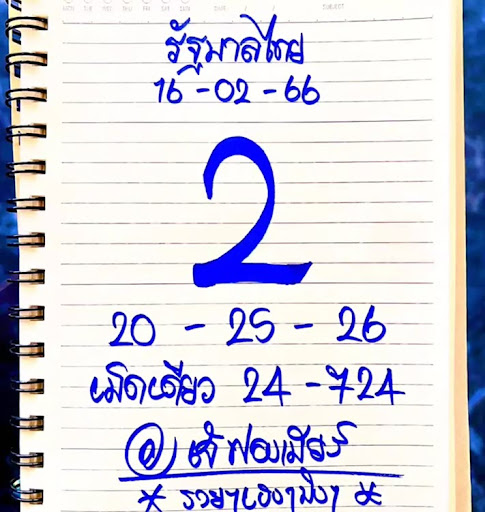 MON TUE WED THU FRI SAT SUN DATE / / SUBJECT
รัฐบาลไทย
16-02-66
2
20 - 25 - 26
เม็ดเดียว 24 - 724
เจ๊ฟองเบียร์
* รวยๆเฮงๆปังๆ *